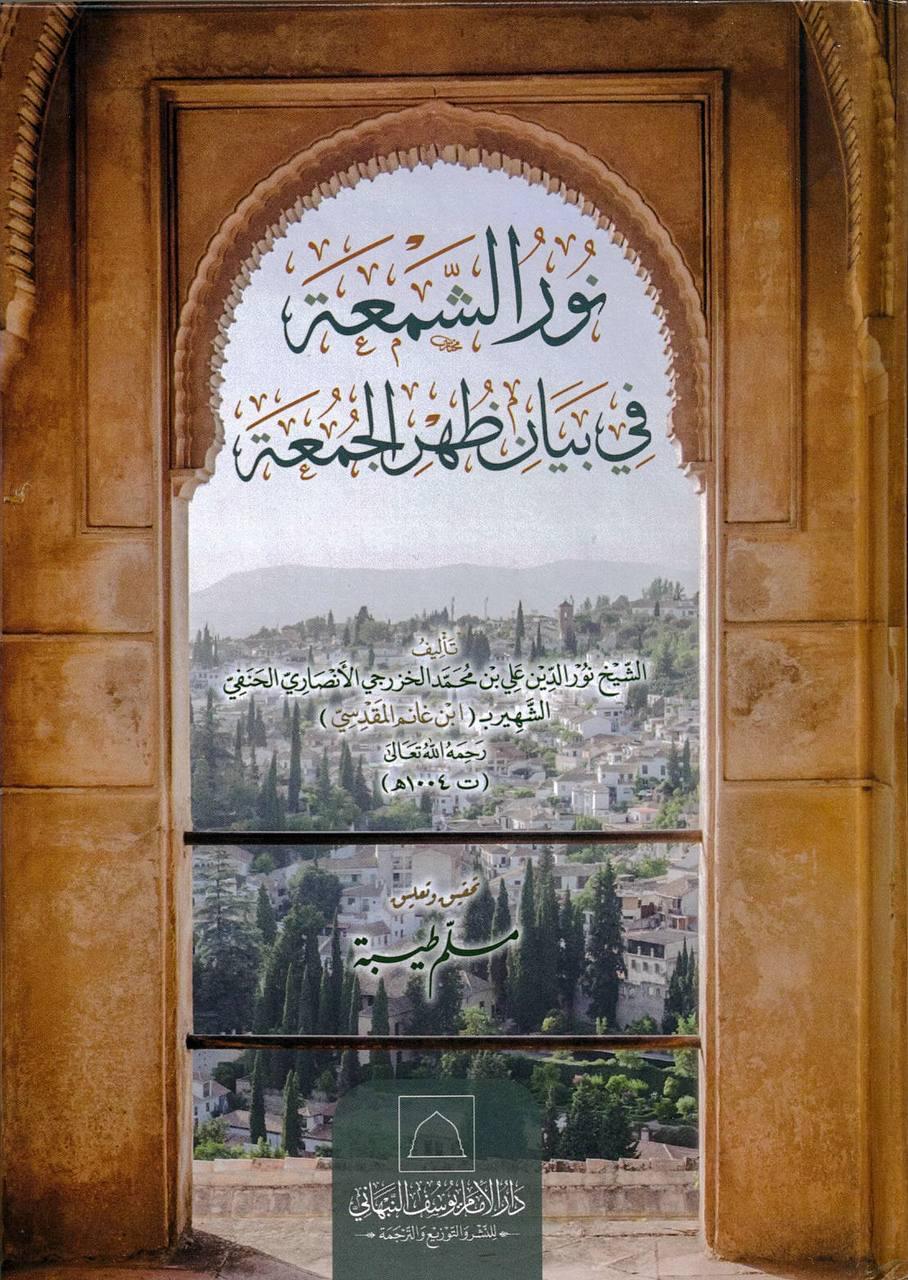 نُورُ الشَّمْعَة
فِي بَيَانِ ظُهْرِ الجُمُعَة
تَأْلِيفُ
الشَّيْخ نُورُ الدِّيْن عَلي بن مُحَمَّد الخزرجي الأَنْصَارِيّ الحَنَفِيّ
الشَّهِير بـ (ابن غانم المَقْدِسِيّ)
رَحِمَهُ اللهُ تَعَالَى
(ت ١٠٠٤هـ)
تحقيق وتعليق
مسلّم طيبة
دَارُ الإِمَام يُوسُف النَّبْهَانِي
لِلنَّشْرِ وَالتَّوْزِيْعِ وَالتَّرْجَمَة